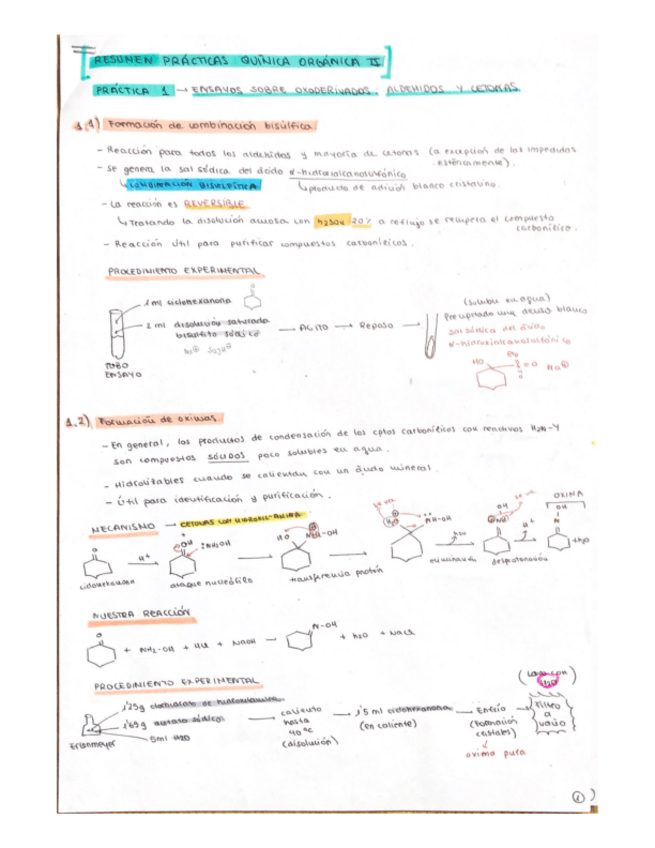 RESUMEN PRÁCTICAS QUÍMICA ORGÁNICA II
PRÁCTICA 1 → ENSAYOS SOBRE OXODERIVADOS: ALDEHIDOS Y CETONAS
1.1) Formación de combinación bisúlfica.
- Reacción para todos los aldehidos y mayoría de cetonas (a excepción de las impedidas
estéricamente).
- Se genera la sal sódica del ácido α-hidroxialcanosulfónico
↳ COMBINACIÓN BISULFÍTICA ↳ producto de adición blanco cristalino.
- La reacción es REVERSIBLE
↳ Tratando la disolución acuosa con H2SO4 20% a reflujo se recupera el compuesto
carbonílico.
- Reacción útil para purificar compuestos carbonílicos.
PROCEDIMIENTO EXPERIMENTAL
1 ml ciclohexanona
2 ml disolución saturada
bisulfito sódico
TUBO
ENSAYO
→ AGITO → Reposo →
(soluble en agua)
Precipitado
blanco
sal sódica del ácido
α-hidroxialcanosulfónico
HO
Na⊕
1.2) Formación de oximas.
- En general, los productos de condensación de los cptos carbonílicos con reactivos H2N-Y
son compuestos sólidos poco solubles en agua.
- Hidrolizables cuando se calientan con un ácido mineral.
- Útil para identificación y purificación.
MECANISMO → CETONAS CON HIDROXIL-AMINA
OXIMA
H+
:NH2OH
HO
NH-OH
+H2O
ciclohexanona
ataque nucleófilo
transferencia protón
eliminación
desprotonación
NUESTRA REACCIÓN
+ NH2-OH + HCl + NaOH → N-OH + H2O + NaCl
PROCEDIMIENTO EXPERIMENTAL
1'25g clorhidrato de hidroxilamina
1'69g acetato sódico
5ml H2O
Erlenmeyer
caliento
hasta
40ºC
(disolución)
1'5 ml ciclohexanona
(en caliente)
Enfrío
(formación
cristales)
oxima pura
(Lavo con
H2O)
Filtro
a
vacío
1